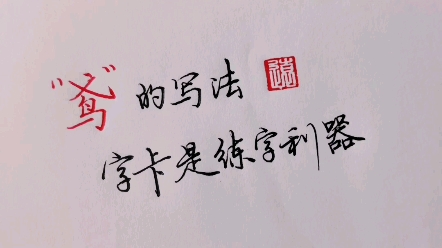 “鸢”的写法
字卡是练字利器